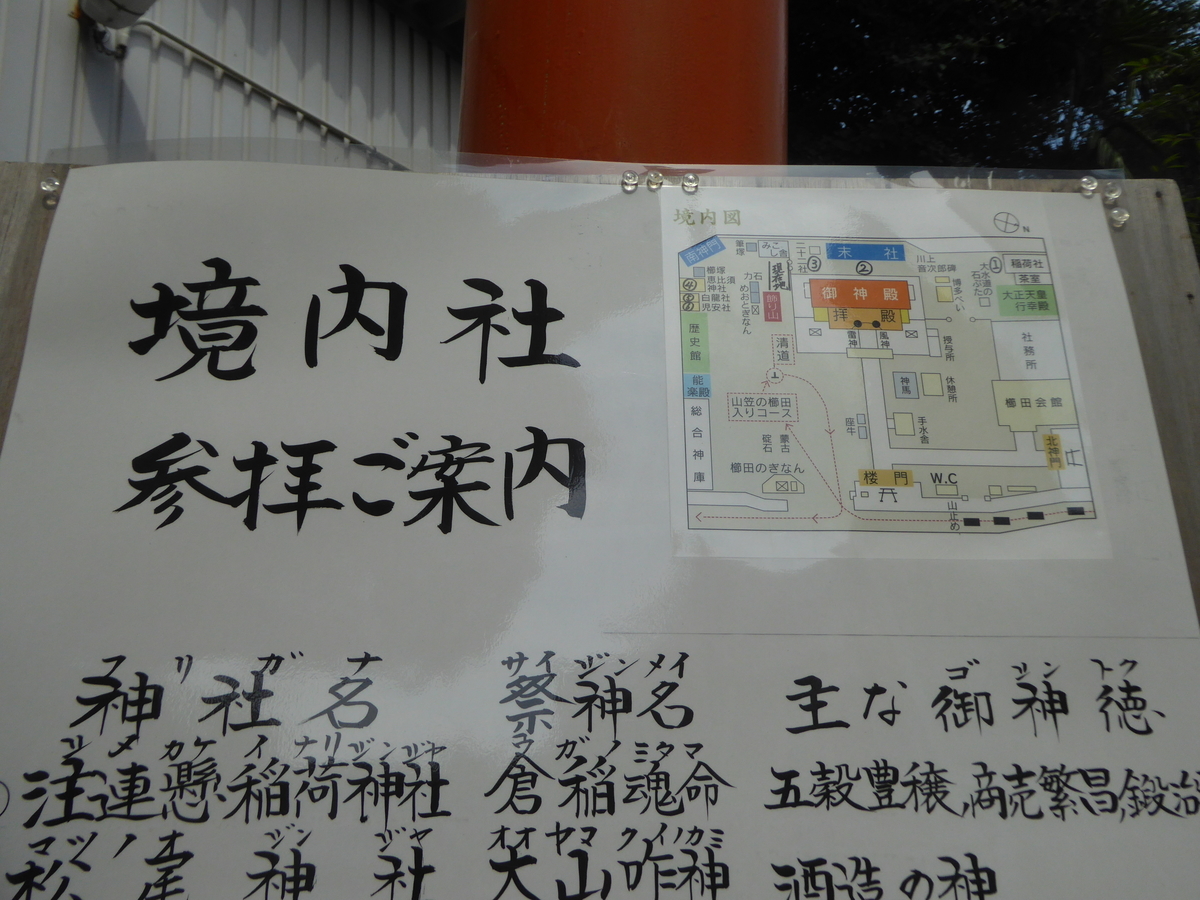 境内社
参拝ご案内
境内図
N
南神門
筆塚
みこし舎
二十二社
③
末社
②
川上音次郎碑
大水道の石ぶた
①
稲荷社
茶室
櫛塚
④
恵比須神社
白龍社
児安社
力石
めおとぎなん
現在地
飾り山
御神殿
拝殿
雷神
風神
博多べい
大正天皇
行幸殿
歴史館
能楽殿
総合神庫
清道
山笠の櫛田
入りコース
碇石
蒙古
櫛田のぎなん
授与所
社務所
神馬
休憩所
手水舎
座牛
櫛田会館
北神門
楼門
W.C
山止め
フリガナ
神社名
サイジンメイ
祭神名
ゴシントク
主な御神徳
シメカケイナリジンジャ
注連懸稲荷神社
ウガノミタマ
倉稲魂命
五穀豊穣,商売繁昌,鍛冶
マツノオジンジャ
松尾神社
オオヤマクイノカミ
大山咋神
酒造の神